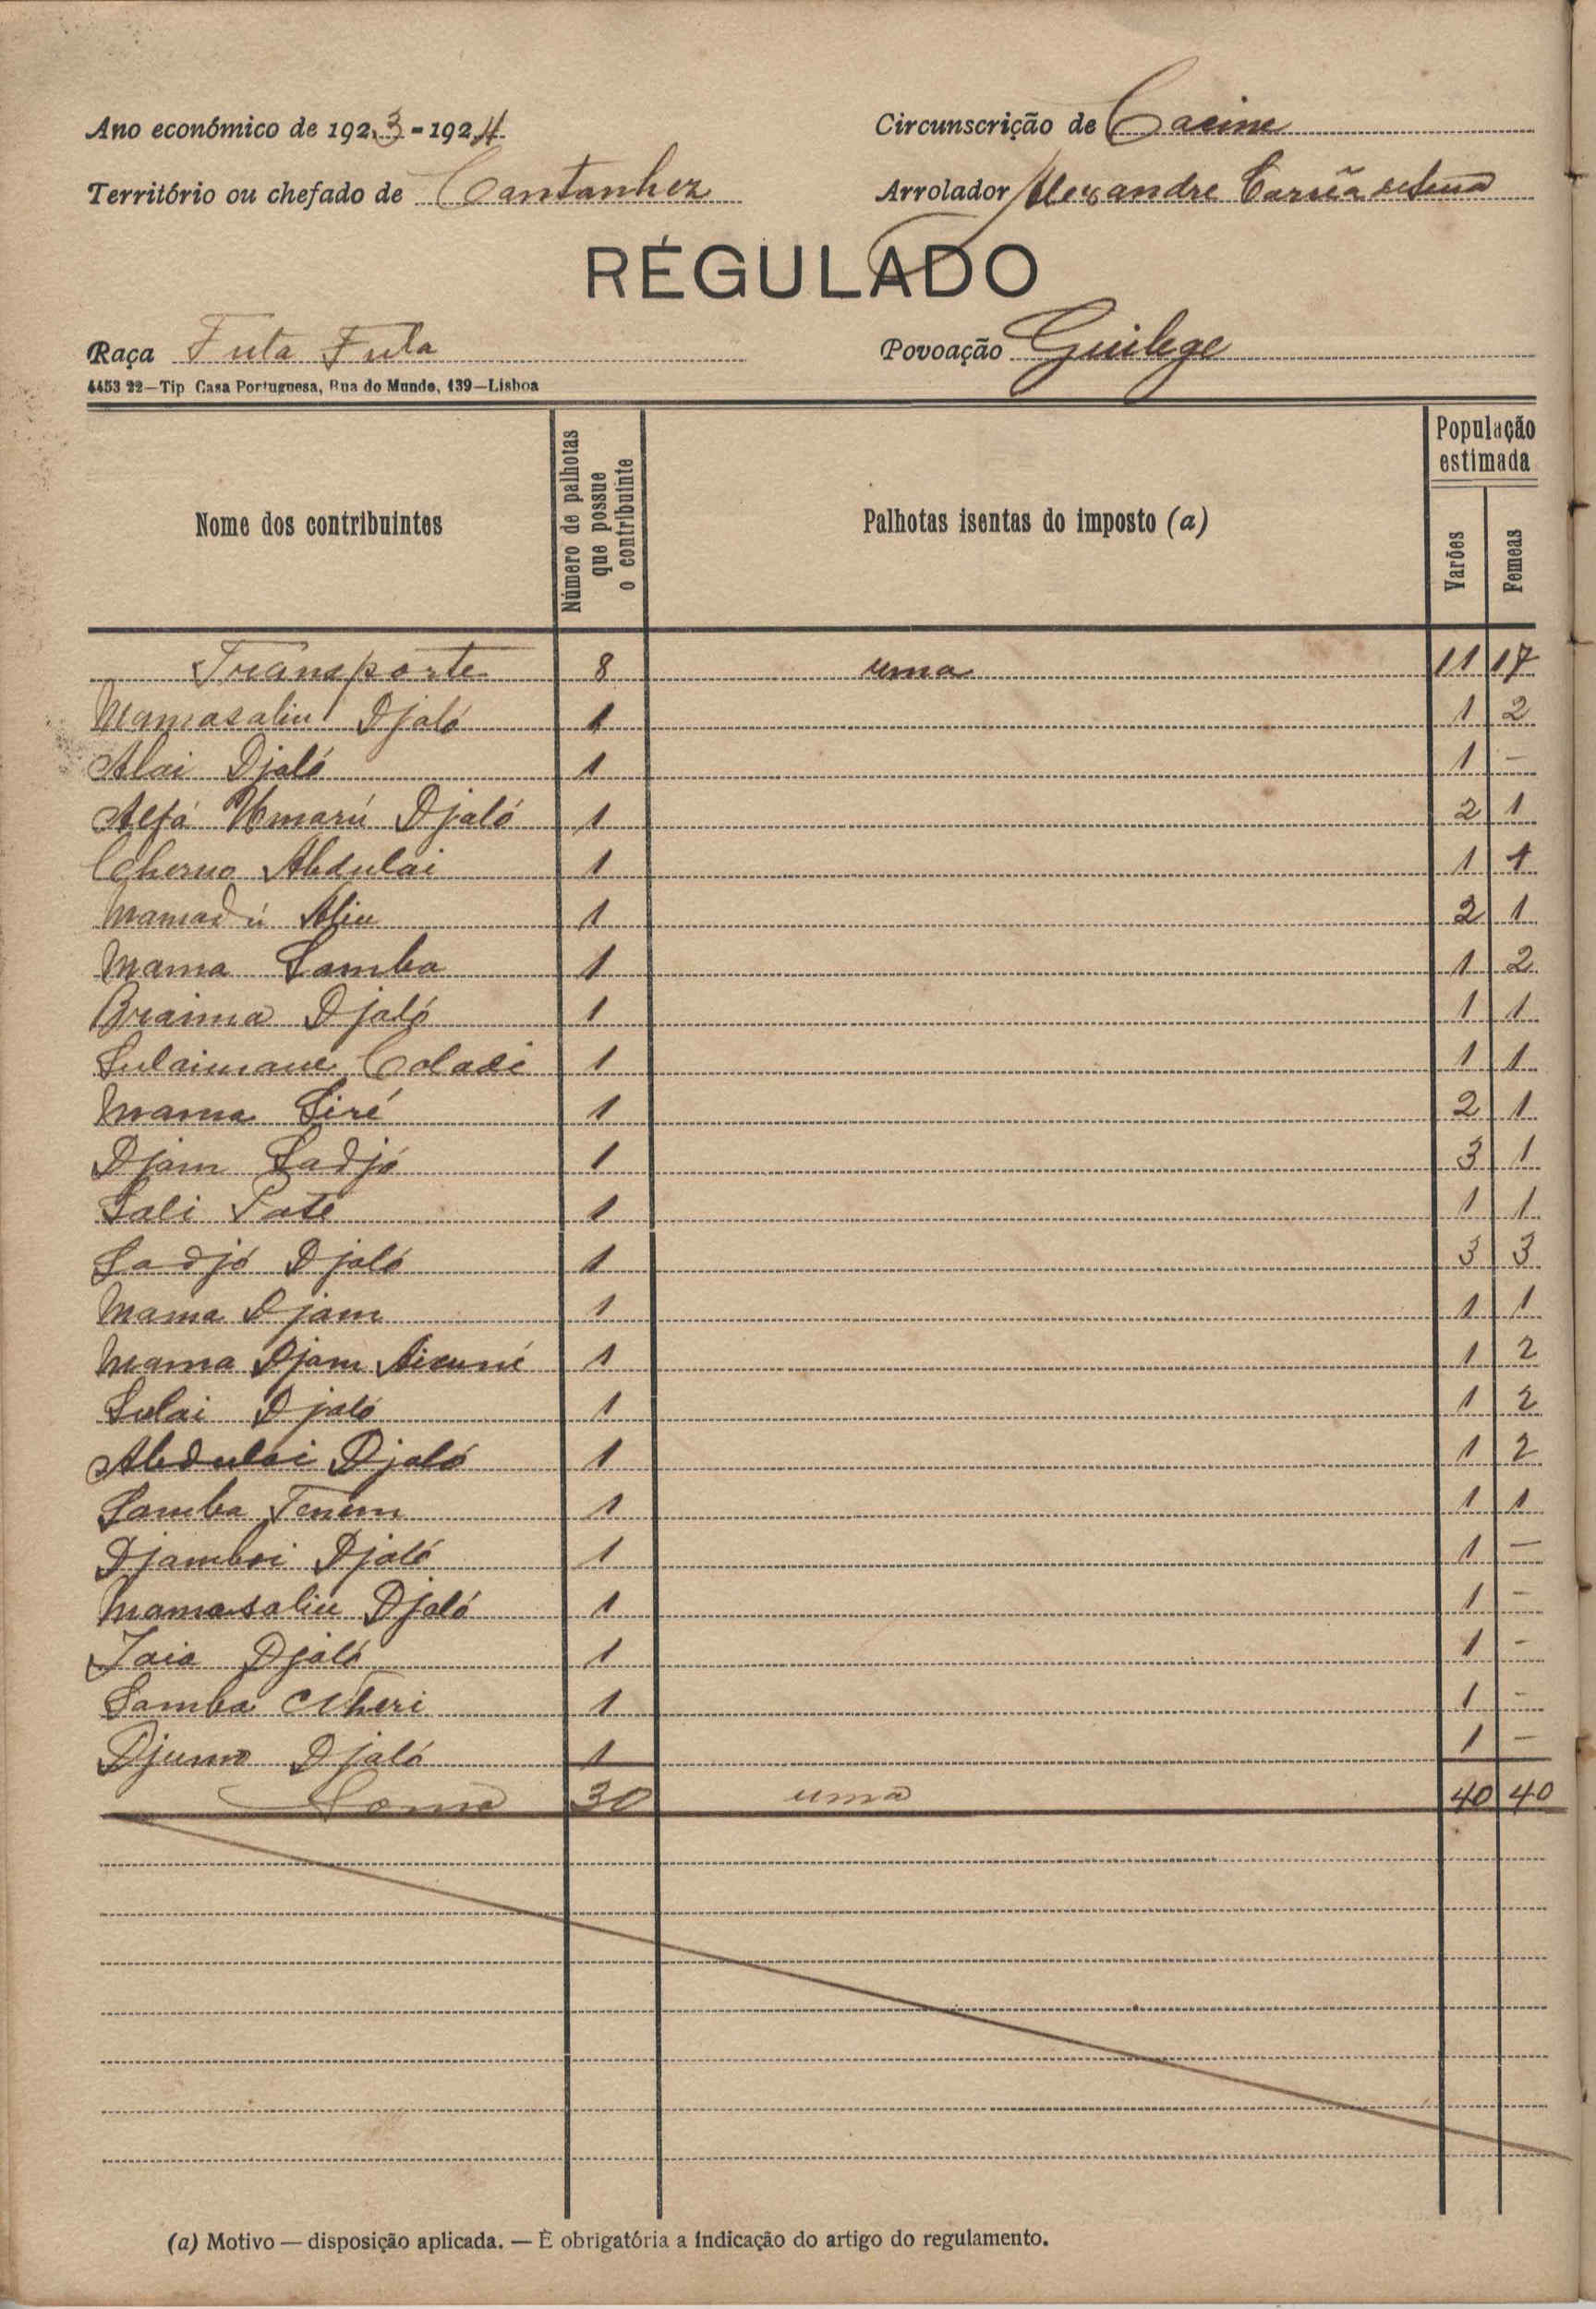 Ano económico de 1923-1924 Circunscrição de Cacine
Território ou chefado de Cantanhez Arrolador Alexandre
RÉGULADO
Raça Fula Fula Povoação Guilege
4453 22—Tip. Casa Portuguesa, Rua do Mundo, 139—Lisboa
Nome dos contribuintes Número de palhotas que possue o contribuinte Palhotas isentas do imposto (a) População estimada Varões Femeas
Transporte 8 uma 11 17
Mamasaliu Djaló 1 1 2
Alai Djaló 1 1 —
Alfá Umarú Djaló 1 2 1
Cherno Abdulai 1 1 1
Mamadú Aliu 1 2 1
Mama Samba 1 1 2
Braima Djaló 1 1 1
Sulaimane 1 1 1
Mama Siré 1 2 1
Djam Sadjó 1 3 1
Sali Paté 1 1 1
Sadjó Djaló 1 3 3
Mama Djam 1 1 1
Mama Djam 1 1 2
Sulai Djaló 1 1 2
Abdulai Djaló 1 1 2
Samba Tenem 1 1 1
Djamboi Djaló 1 1 —
Mamasaliu Djaló 1 1 -
Iaia Djaló 1 1 -
Samba 1 1 -
Djumo Djaló 1 1 —
Soma 30 uma 40 40
(a) Motivo — disposição aplicada. — É obrigatória a indicação do artigo do regulamento.